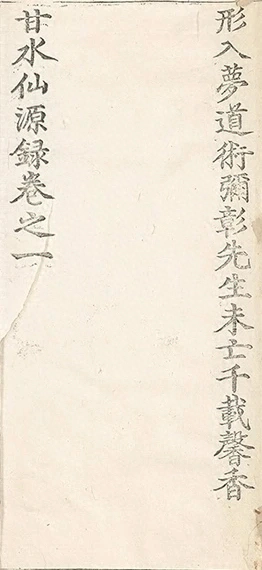 形入夢道術彌彰先生未亡千載馨香
甘水仙源録卷之一